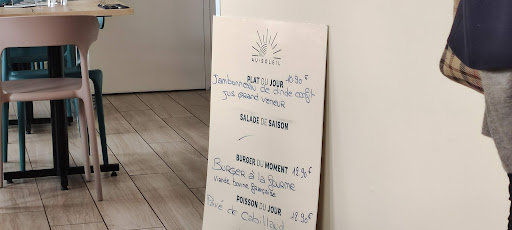 AU·SOLEIL
PLAT DU JOUR 10.90€
Jambonneau de dinde confit
jus grand veneur
SALADE DE SAISON
BURGER DU MOMENT 12.90€
BURGER à la fourme
viande bovine française
POISSON DU JOUR 12.90€
Pavé de Cabillaud